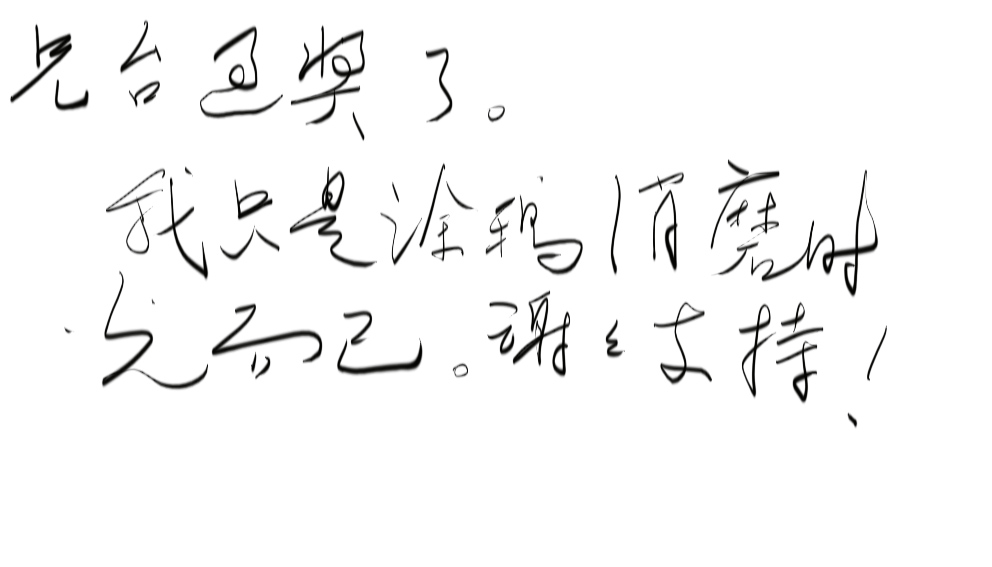 兄台过奖了。
我只是涂鸦消磨时
光而已。谢谢支持！